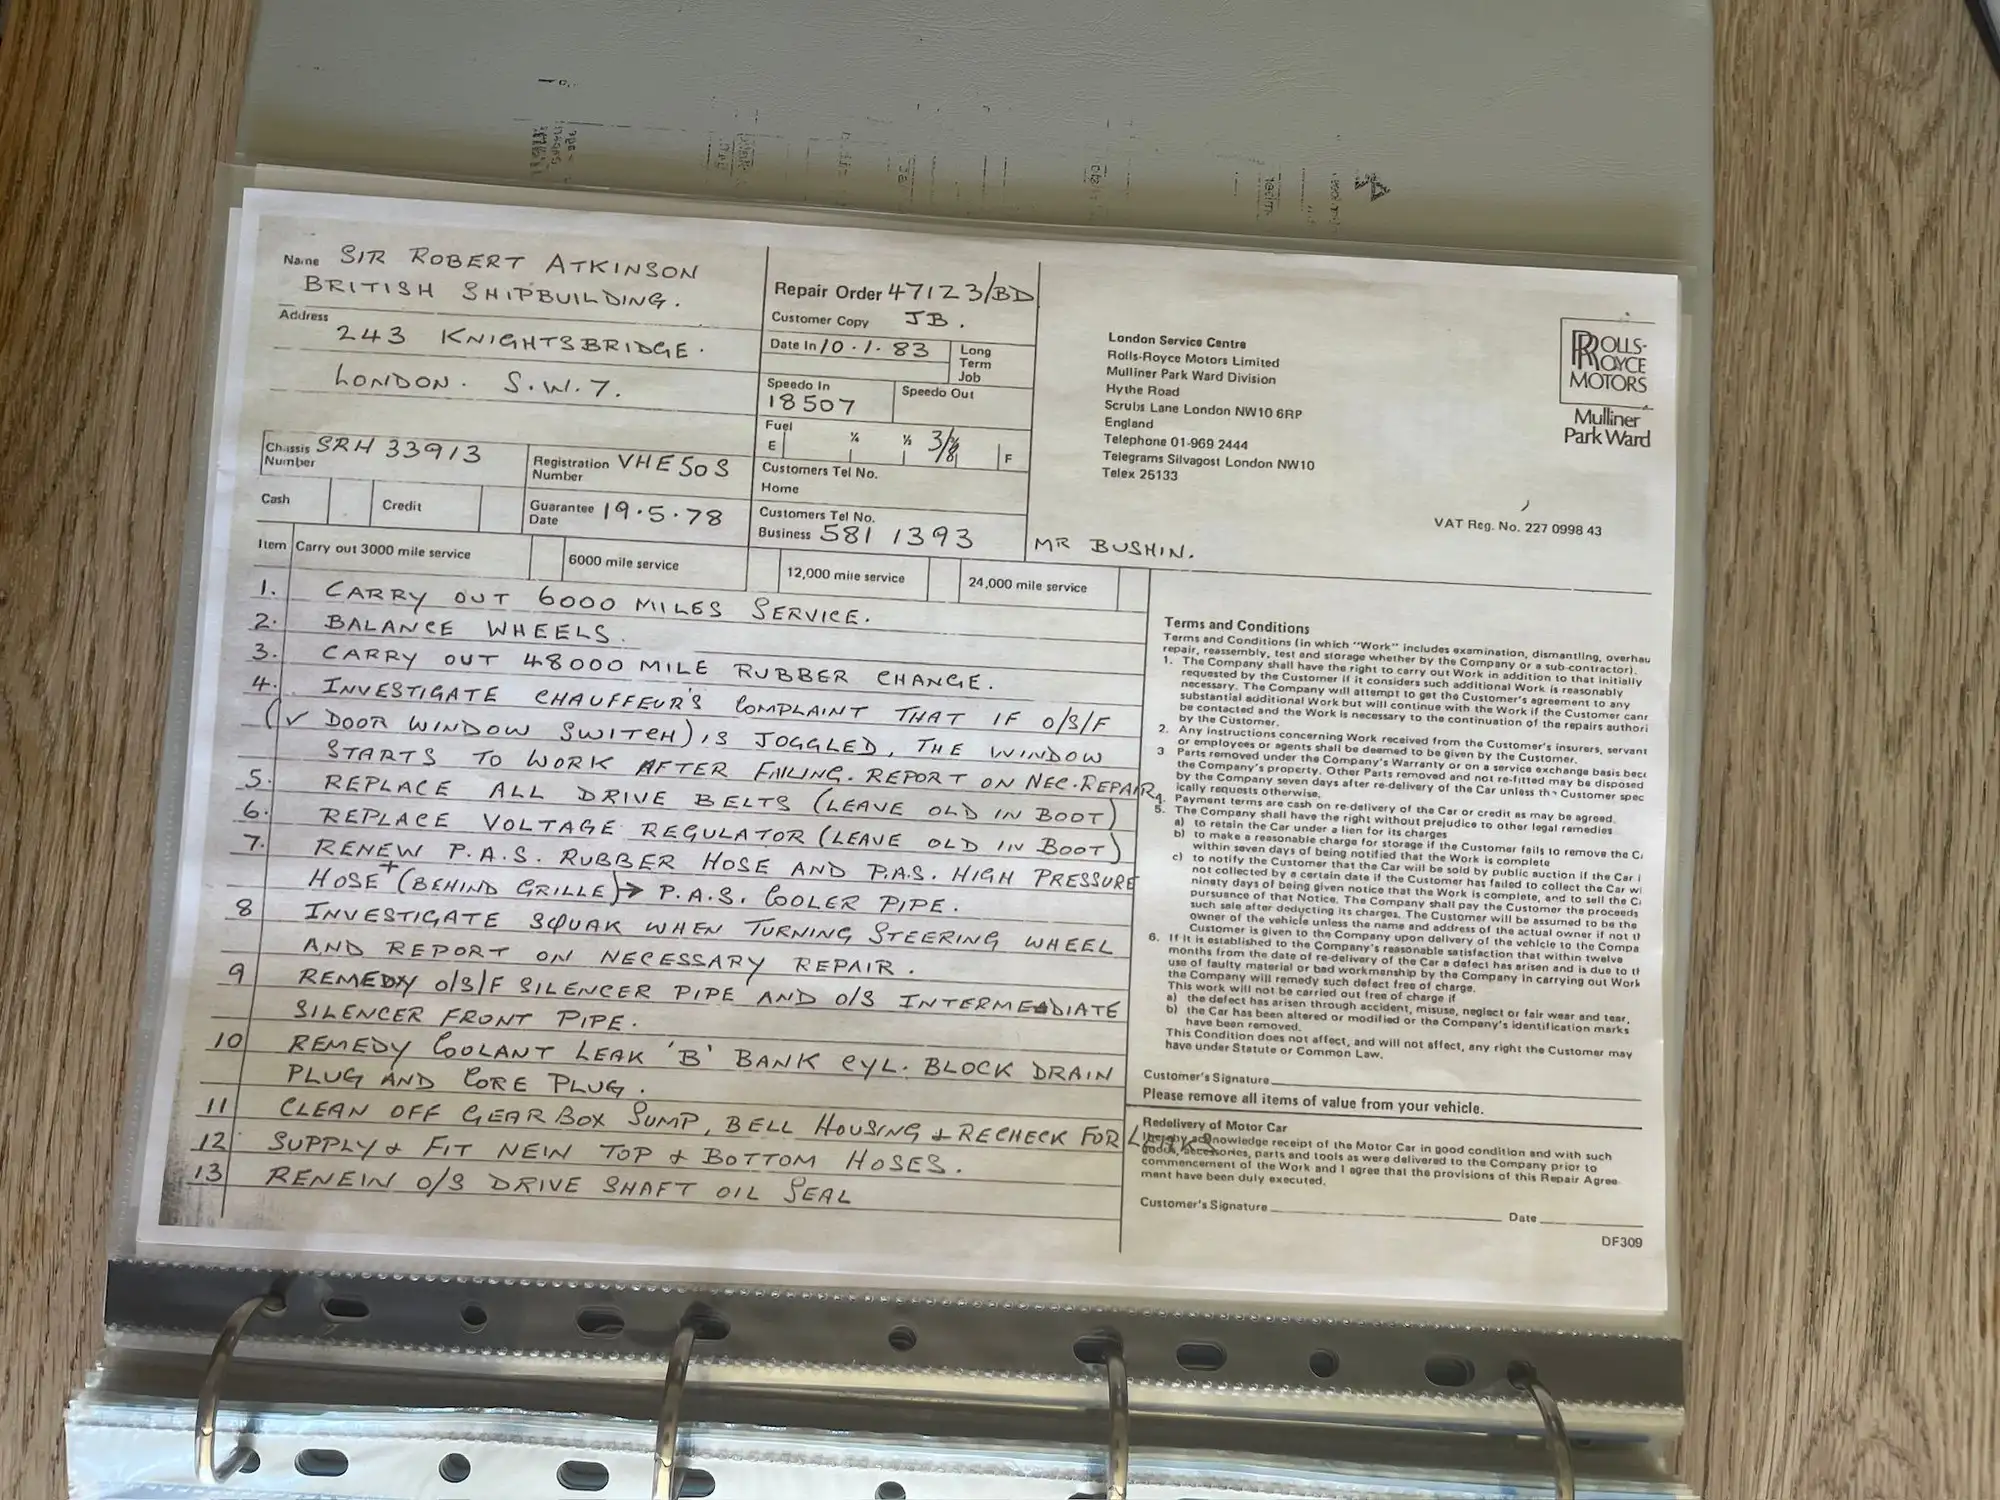 Name SIR ROBERT ATKINSON
BRITISH SHIPBUILDING.
Address
243 KNIGHTSBRIDGE.
LONDON. S.W.7.
Chassis Number SRH 33913
Registration Number VHE 50 S
Cash
Credit
Guarantee Date 19.5.78
Repair Order 47123/BD
Customer Copy JB.
Date In 10.1.83
Long Term Job
Speedo In
18507
Speedo Out
Fuel
E ¼ ½ 3/8 F
Customers Tel No.
Home
Customers Tel No.
Business 581 1393
MR BUSHIN.
London Service Centre
Rolls-Royce Motors Limited
Mulliner Park Ward Division
Hythe Road
Scrubs Lane London NW10 6RP
England
Telephone 01-969 2444
Telegrams Silvagost London NW10
Telex 25133
ROLLS-
ROYCE
MOTORS
Mulliner
Park Ward
VAT Reg. No. 227 0998 43
Item Carry out 3000 mile service
6000 mile service
12,000 mile service
24,000 mile service
1. CARRY OUT 6000 MILES SERVICE.
2. BALANCE WHEELS.
3. CARRY OUT 48000 MILE RUBBER CHANGE.
4. INVESTIGATE CHAUFFEUR'S COMPLAINT THAT IF O/S/F
(✓ DOOR WINDOW SWITCH) IS JOGGLED, THE WINDOW
STARTS TO WORK AFTER FAILING. REPORT ON NEC. REPAIR.
5. REPLACE ALL DRIVE BELTS (LEAVE OLD IN BOOT)
6. REPLACE VOLTAGE REGULATOR (LEAVE OLD IN BOOT)
7. RENEW P.A.S. RUBBER HOSE AND P.A.S. HIGH PRESSURE
HOSE + (BEHIND GRILLE) → P.A.S. COOLER PIPE.
8 INVESTIGATE SQUAK WHEN TURNING STEERING WHEEL
AND REPORT ON NECESSARY REPAIR.
9 REMEDY O/S/F SILENCER PIPE AND O/S INTERMEDIATE
SILENCER FRONT PIPE.
10 REMEDY COOLANT LEAK 'B' BANK CYL. BLOCK DRAIN
PLUG AND CORE PLUG.
11 CLEAN OFF GEAR BOX SUMP, BELL HOUSING & RECHECK FOR LEAKS
12 SUPPLY & FIT NEW TOP & BOTTOM HOSES.
13 RENEW O/S DRIVE SHAFT OIL SEAL
Terms and Conditions
Terms and Conditions (in which "Work" includes examination, dismantling, overhau
repair, reassembly, test and storage whether by the Company or a sub-contractor).
1. The Company shall have the right to carry out Work in addition to that initially
requested by the Customer if it considers such additional Work is reasonably
necessary. The Company will attempt to get the Customer's agreement to any
substantial additional Work but will continue with the Work if the Customer cann
be contacted and the Work is necessary to the continuation of the repairs authori
by the Customer.
2. Any instructions concerning Work received from the Customer's insurers, servant
or employees or agents shall be deemed to be given by the Customer.
3 Parts removed under the Company's Warranty or on a service exchange basis bec
the Company's property. Other Parts removed and not re-fitted may be disposed
by the Company seven days after re-delivery of the Car unless the Customer spec
ically requests otherwise.
4. Payment terms are cash on re-delivery of the Car or credit as may be agreed.
5. The Company shall have the right without prejudice to other legal remedies
a) to retain the Car under a lien for its charges
b) to make a reasonable charge for storage if the Customer fails to remove the C
within seven days of being notified that the Work is complete
c) to notify the Customer that the Car will be sold by public auction if the Car i
not collected by a certain date if the Customer has failed to collect the Car wi
ninety days of being given notice that the Work is complete, and to sell the C
pursuance of that Notice. The Company shall pay the Customer the proceeds
such sale after deducting its charges. The Customer will be assumed to be the
owner of the vehicle unless the name and address of the actual owner if not t
Customer is given to the Company upon delivery of the vehicle to the Compa
6. If it is established to the Company's reasonable satisfaction that within twelve
months from the date of re-delivery of the Car a defect has arisen and is due to t
use of faulty material or bad workmanship by the Company in carrying out Work
the Company will remedy such defect free of charge.
This work will not be carried out free of charge if
a) the defect has arisen through accident, misuse, neglect or fair wear and tear,
b) the Car has been altered or modified or the Company's identification marks
have been removed.
This Condition does not affect, and will not affect, any right the Customer may
have under Statute or Common Law.
Customer's Signature
Please remove all items of value from your vehicle.
Redelivery of Motor Car
I hereby acknowledge receipt of the Motor Car in good condition and with such
goods, accessories, parts and tools as were delivered to the Company prior to
commencement of the Work and I agree that the provisions of this Repair Agree
ment have been duly executed.
Customer's Signature
Date
DF309